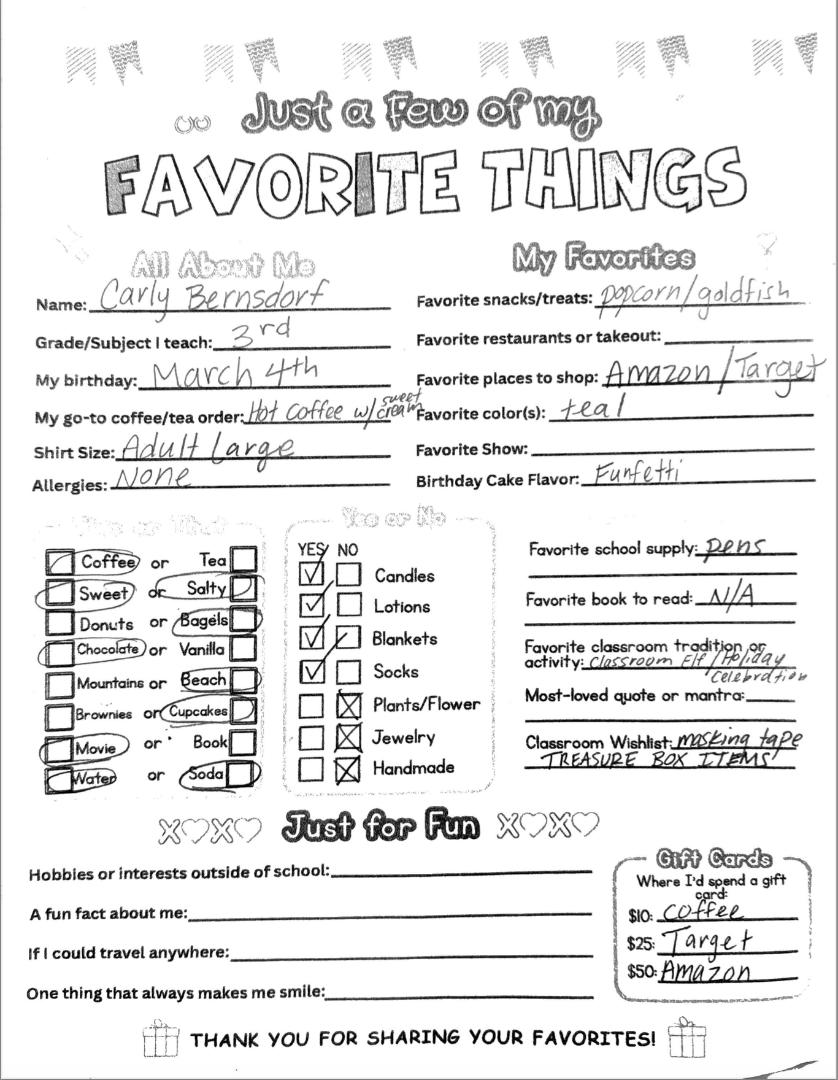 Just a Few of my
FAVORITE THINGS
All About Me
Name: Carly Bernsdorf
Grade/Subject I teach: 3rd
My birthday: March 4th
My go-to coffee/tea order: Hot Coffee w/ sweet cream
Shirt Size: Adult Large
Allergies: None
My Favorites
Favorite snacks/treats: popcorn/goldfish
Favorite restaurants or takeout:
Favorite places to shop: Amazon/Target
Favorite color(s): teal
Favorite Show:
Birthday Cake Flavor: Funfetti
This or That
Coffee or Tea
Sweet or Salty
Donuts or Bagels
Chocolate or Vanilla
Mountains or Beach
Brownies or Cupcakes
Movie or Book
Water or Soda
Yes or No
YES NO
Candles
Lotions
Blankets
Socks
Plants/Flower
Jewelry
Handmade
Favorite school supply: pens
Favorite book to read: N/A
Favorite classroom tradition or
activity: Classroom Elf/Holiday
Celebration
Most-loved quote or mantra:
Classroom Wishlist: masking tape
TREASURE BOX ITEMS
XOXO Just for Fun XOXO
Hobbies or interests outside of school:
A fun fact about me:
If I could travel anywhere:
One thing that always makes me smile:
Gift Cards
Where I'd spend a gift
card:
$10: coffee
$25: Target
$50: Amazon
THANK YOU FOR SHARING YOUR FAVORITES!